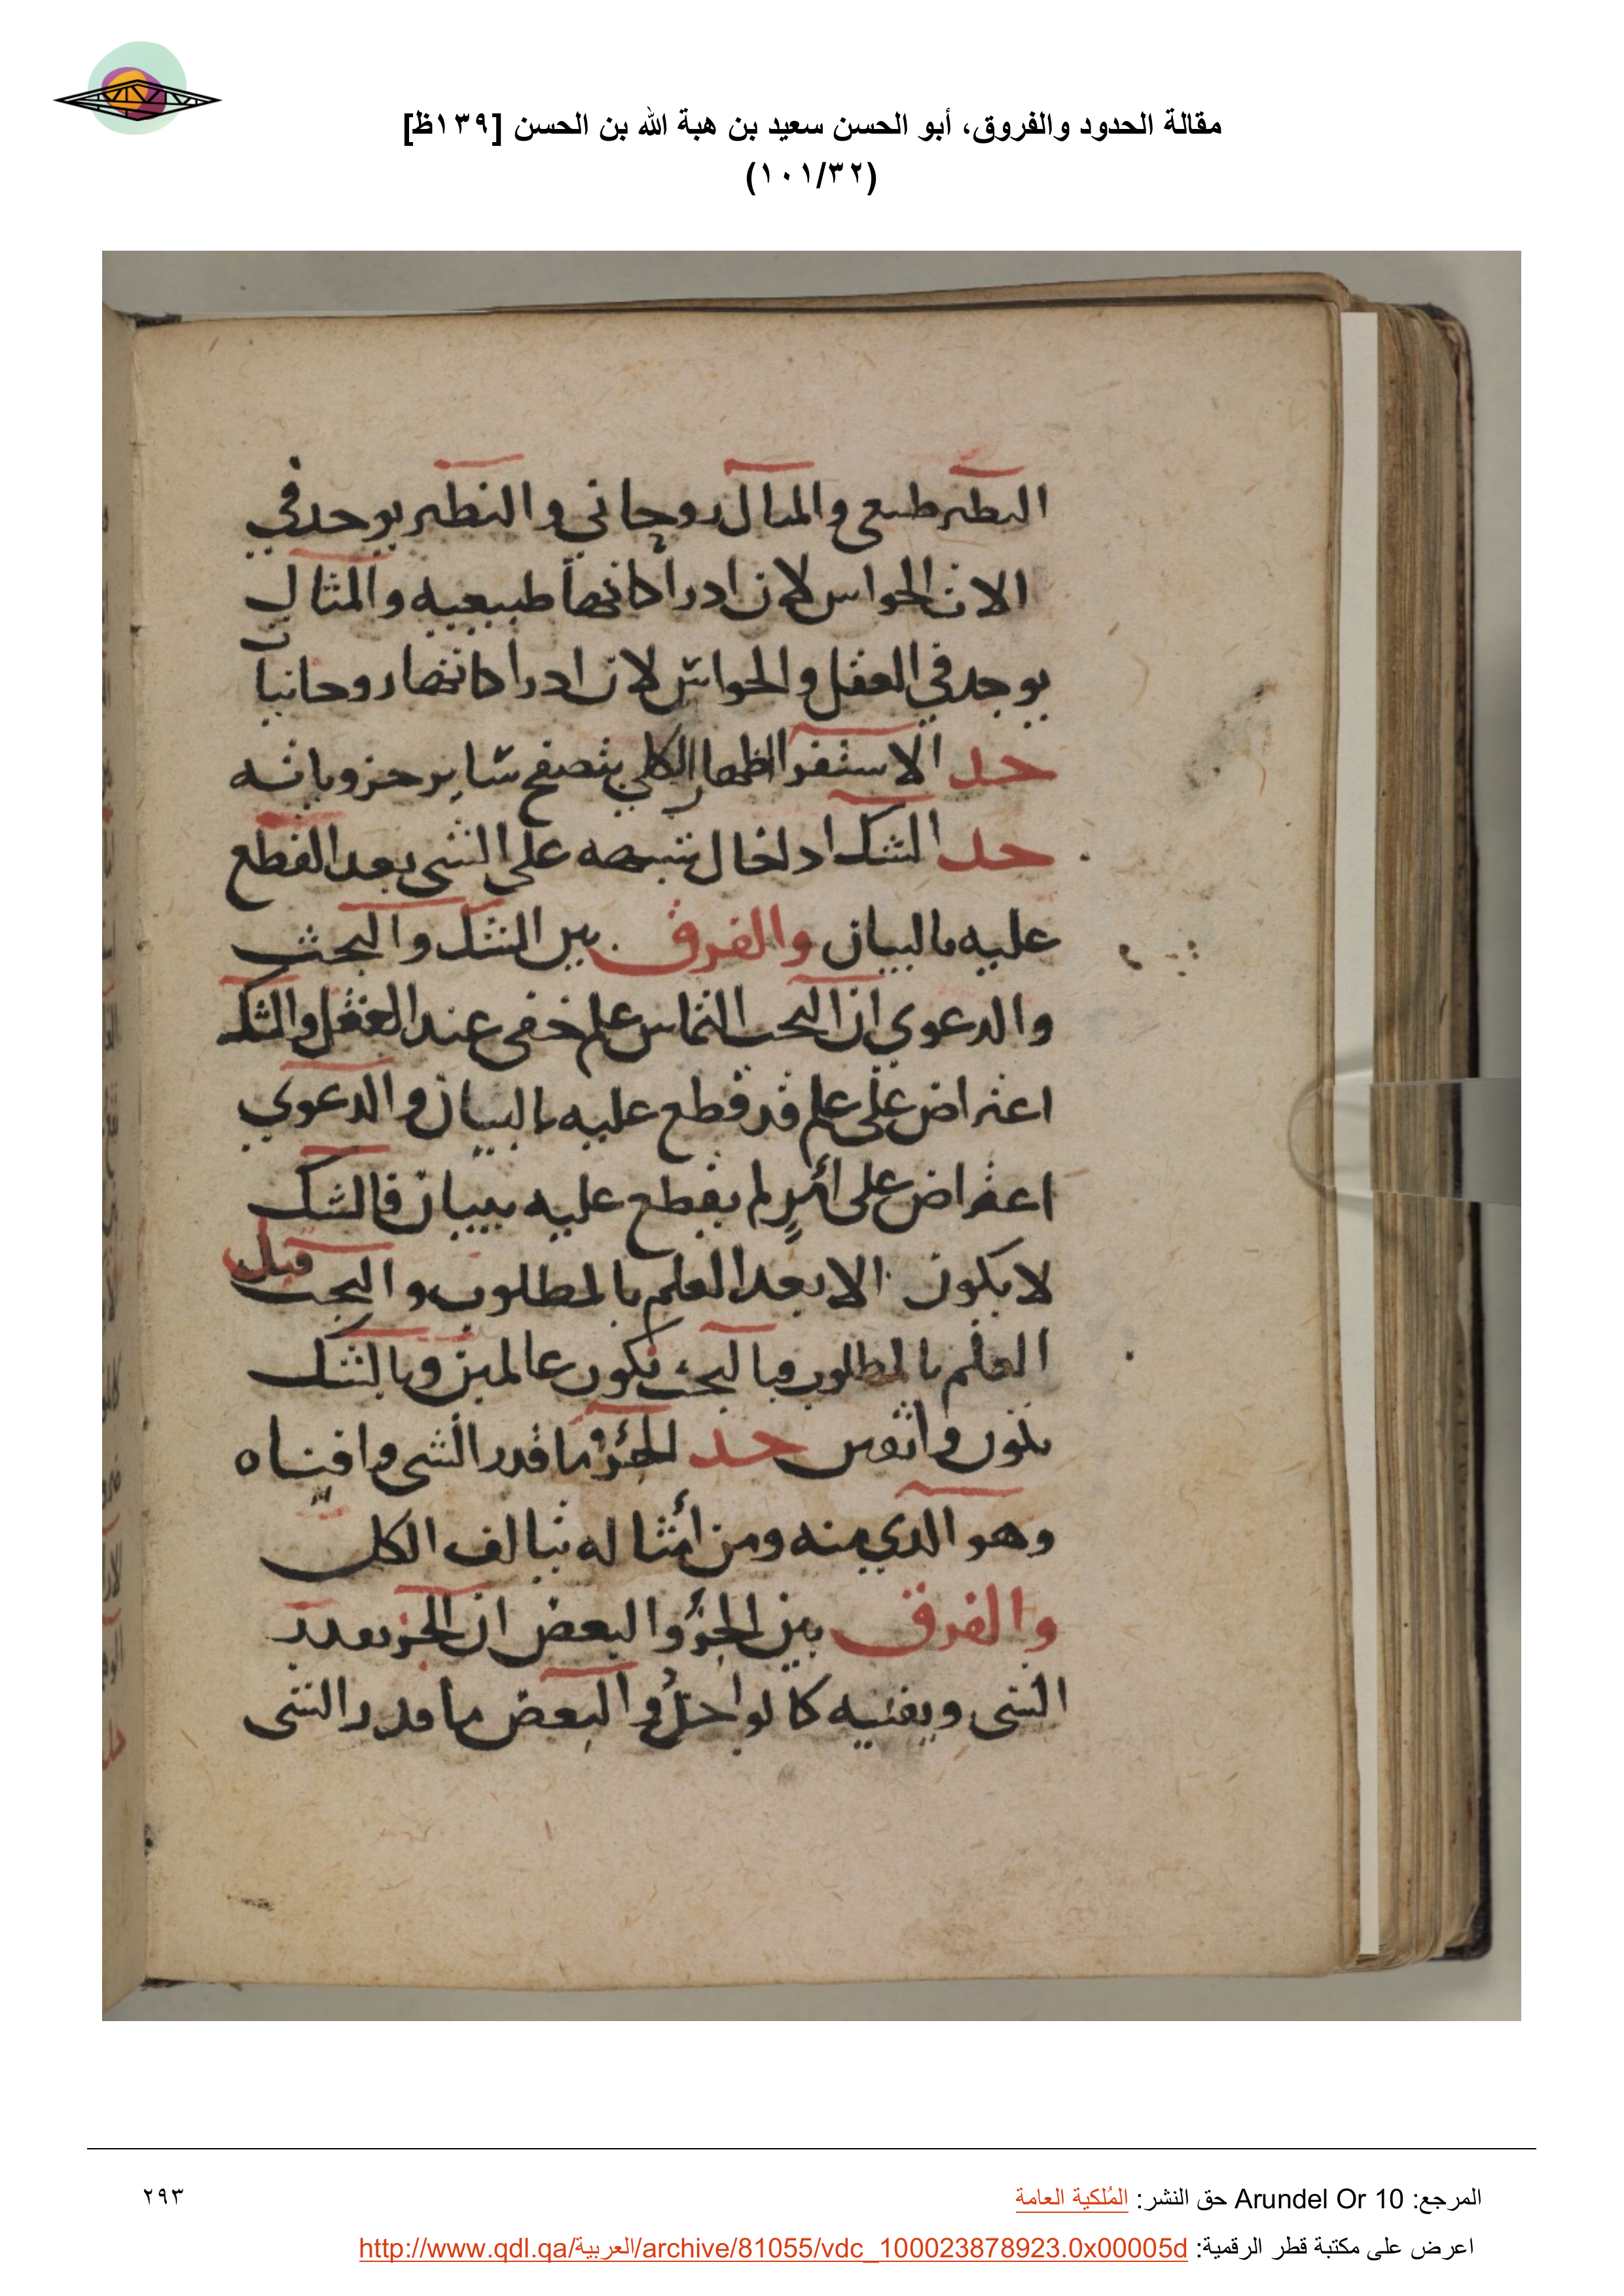 مقالة الحدود والفروق، أبو الحسن سعيد بن هبة الله بن الحسن [١٣٩ظ]
(١٠١/٣٢)
النظير طبيعي والمثال روحاني والنظير يوجد في
الات الحواس لان ادراكاتها طبيعيه والمثال
يوجد في العقل والحواس لان ادراكاتها روحانيا
حد الاستقرا اظهار الكلي بتصفح ساير جزوياته
حد الشك ادخال شبهه على الشي بعد القطع
عليه بالبيان والفرق بين الشك والبحث
والدعوي ان البحث التماس علم خفي عند العقل والشك
اعتراض على علم قد قطع عليه بالبيان والدعوي
اعتراض على أمرٍ لم يقطع عليه ببيان فالشك
لا يكون الا بعد العلم بالمطلوب والبحث قبل
العلم بالمطلوب وبالبحث نكون عالمين وبالشك
حد الجزؤ ما قدر الشي وافناه
وهو الدي منه ومن أمثاله تيالف الكل
والفرق بين الجزؤ والبعض ان الجز يعدد
الشي ويفنيه كالواحد والبعض ما قدر الشي
المرجع: Arundel Or 10 حق النشر: المُلكية العامة
٢٩٣
اعرض على مكتبة قطر الرقمية: http://www.qdl.qa/العربية/archive/81055/vdc_100023878923.0x00005d